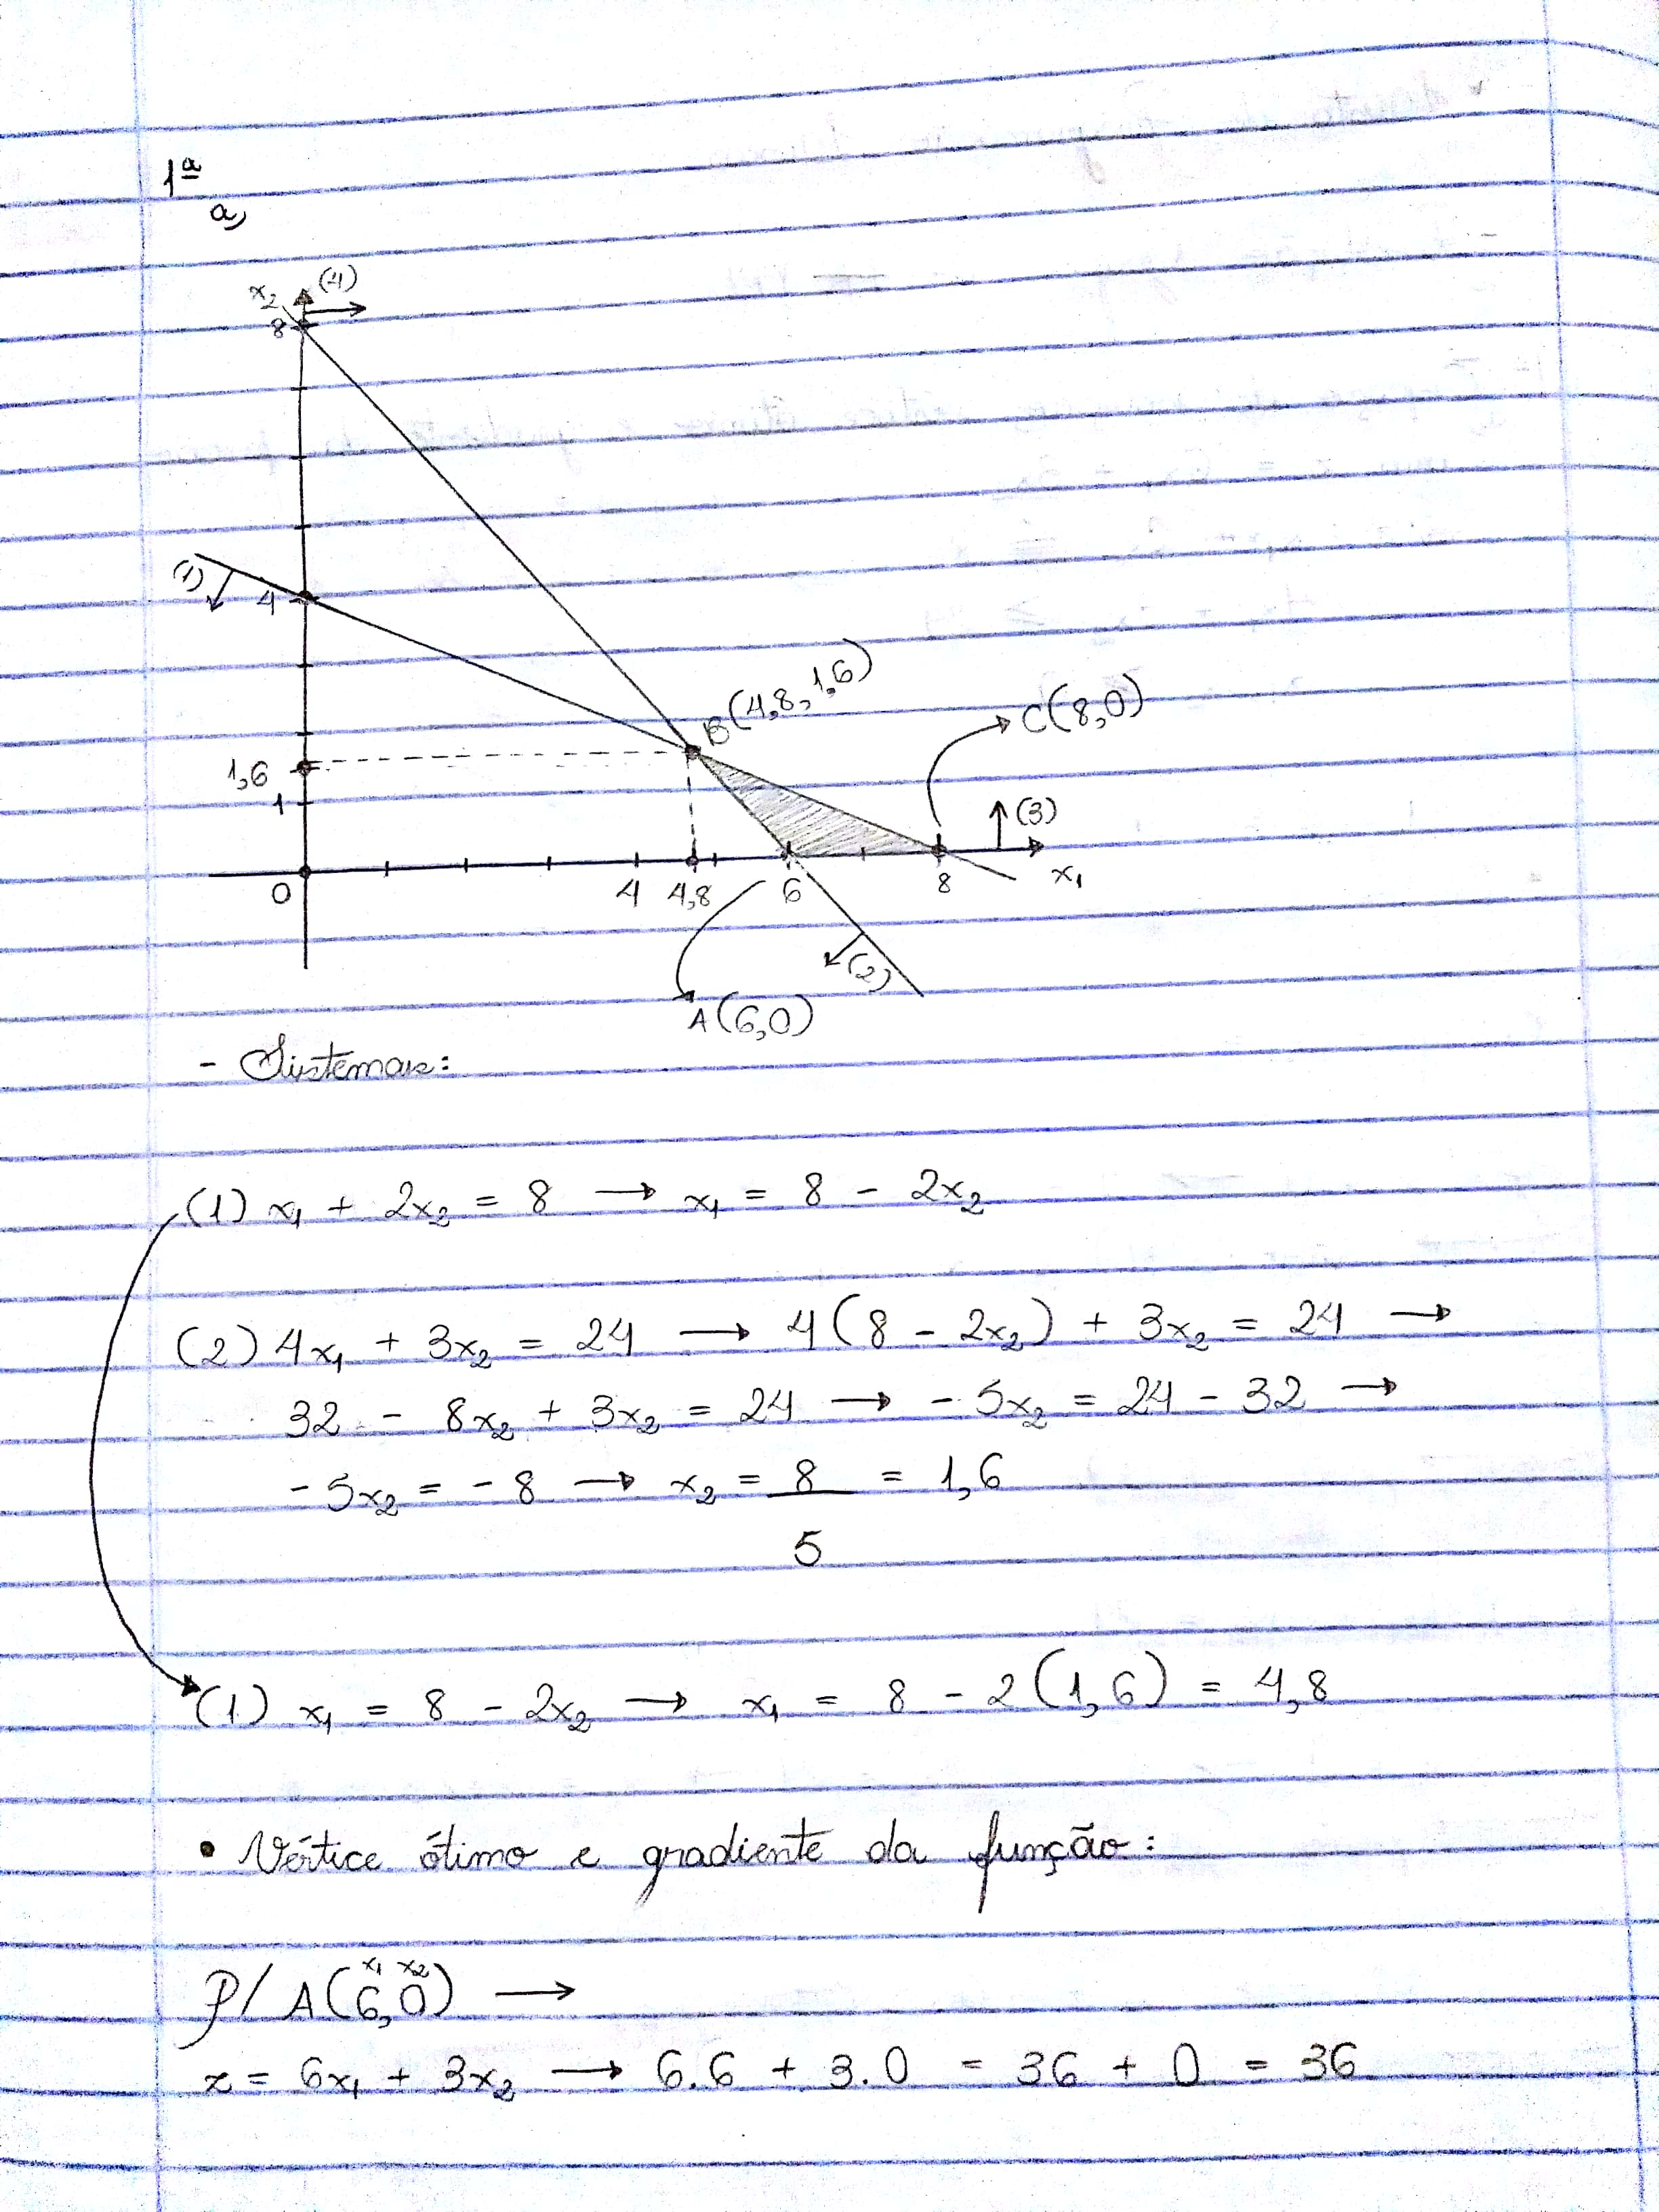 1ª
a)
x₂ (4)
8
(1)
4
B(4,8, 1,6)
C(8,0)
1,6
1
(3)
0 4 4,8 6 8 x₁
(2)
A(6,0)
- Sistemas:
(1) x₁ + 2x₂ = 8 → x₁ = 8 - 2x₂
(2) 4x₁ + 3x₂ = 24 → 4(8 - 2x₂) + 3x₂ = 24 →
32 - 8x₂ + 3x₂ = 24 → - 5x₂ = 24 - 32 →
- 5x₂ = - 8 → x₂ = 8 = 1,6
5
(1) x₁ = 8 - 2x₂ → x₁ = 8 - 2(1,6) = 4,8
• Vértice ótimo e gradiente da função:
x₁ x₂
P/ A(6,0) →
z = 6x₁ + 3x₂ → 6.6 + 3.0 = 36 + 0 = 36